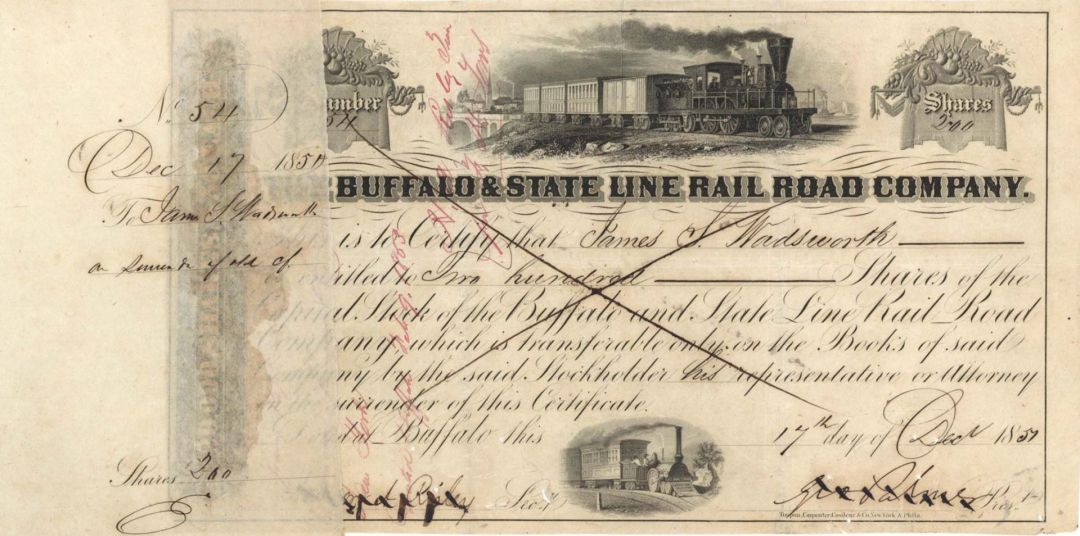 No 54
Dec 17 1857
To James S. Wadsworth
on surrender of old cf
Shares 200
Number
54
Shares
200
BUFFALO & STATE LINE RAIL ROAD COMPANY.
is to Certify that James S. Wadsworth
entitled to Two hundred Shares of the
Stock of the Buffalo and State Line Rail Road
which is transferable only on the Books of said
by the said Stockholder his representative or Attorney
on the surrender of this Certificate.
Buffalo this 17th day of Dec 1857
Secy
Geo Palmer Prest
Toppan, Carpenter, Casilear & Co. New York & Phila.